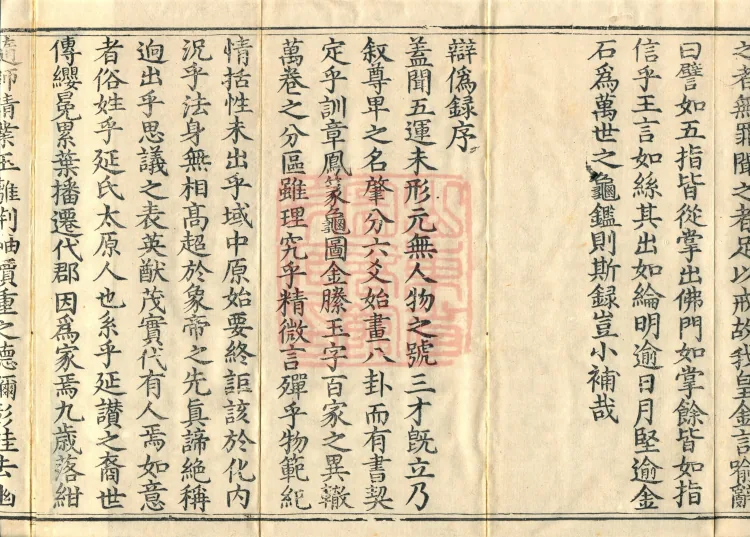 之者無罪聞之者足以戒故我皇金言喻辭
曰譬如五指皆從掌出佛門如掌餘皆如指
信乎王言如絲其出如綸明逾日月堅逾金
石為萬世之龜鑑則斯録豈小補哉
辯偽録序
蓋聞五運未形元無人物之號三才既立乃
叙尊卑之名肇分六爻始畫八卦而有書契
定乎訓章鳳篆龜圖金縢玉字百家之異轍
萬卷之分區雖理究乎精微言殫乎物範紀
情括性未出乎域中原始要終詎該於化内
况乎法身無相高超於象帝之先真諦絶稱
逈出乎思議之表英猷茂實代有人焉如意
者俗姓乎延氏太原人也系乎延讃之裔世
傳纓冕累葉播遷代郡因為家焉九歳落紺
師精業五離